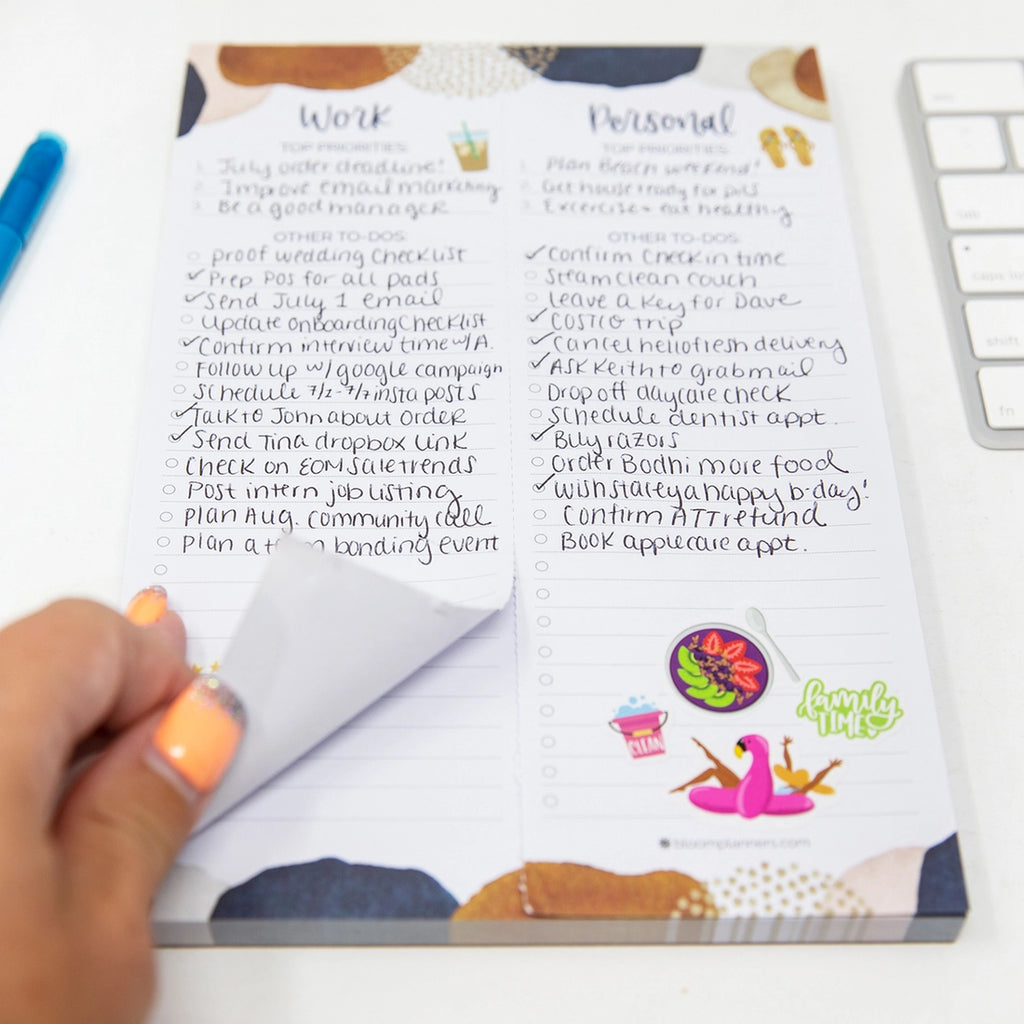 Work
TOP PRIORITIES:
1. July order deadline!
2. Improve email marketing
3. Be a good manager
OTHER TO-DOS:
proof wedding checklist
✓ Prep Pos for all pads
✓ Send July 1 email
Update onboarding checklist
✓ Confirm interview time w/A.
Follow up w/ google campaign
Schedule 7/2-7/7 insta posts
✓ Talk to John about order
✓ Send Tina dropbox link
Check on EOM sale trends
Post intern job listing
Plan Aug. community call
Plan a bonding event
Personal
TOP PRIORITIES:
1. Plan Beach weekend!
2. Get house ready for
3. Excercise + eat healthy
OTHER TO-DOS:
✓ Confirm Check in time
Steam clean couch
Leave a key for Dave
✓ COSTCO trip
✓ Cancel hellofresh delivery
✓ ASK Keith to grab mail
Drop off daycare check
Schedule dentist appt.
✓ Buy razors
Order Bodhi more food
✓ Wish Stacey a happy b-day!
Confirm ATT refund
BOOK applecare appt.
CLEAN
family
TIME
bloomplanners.com
tab
caps lo
shift
fn